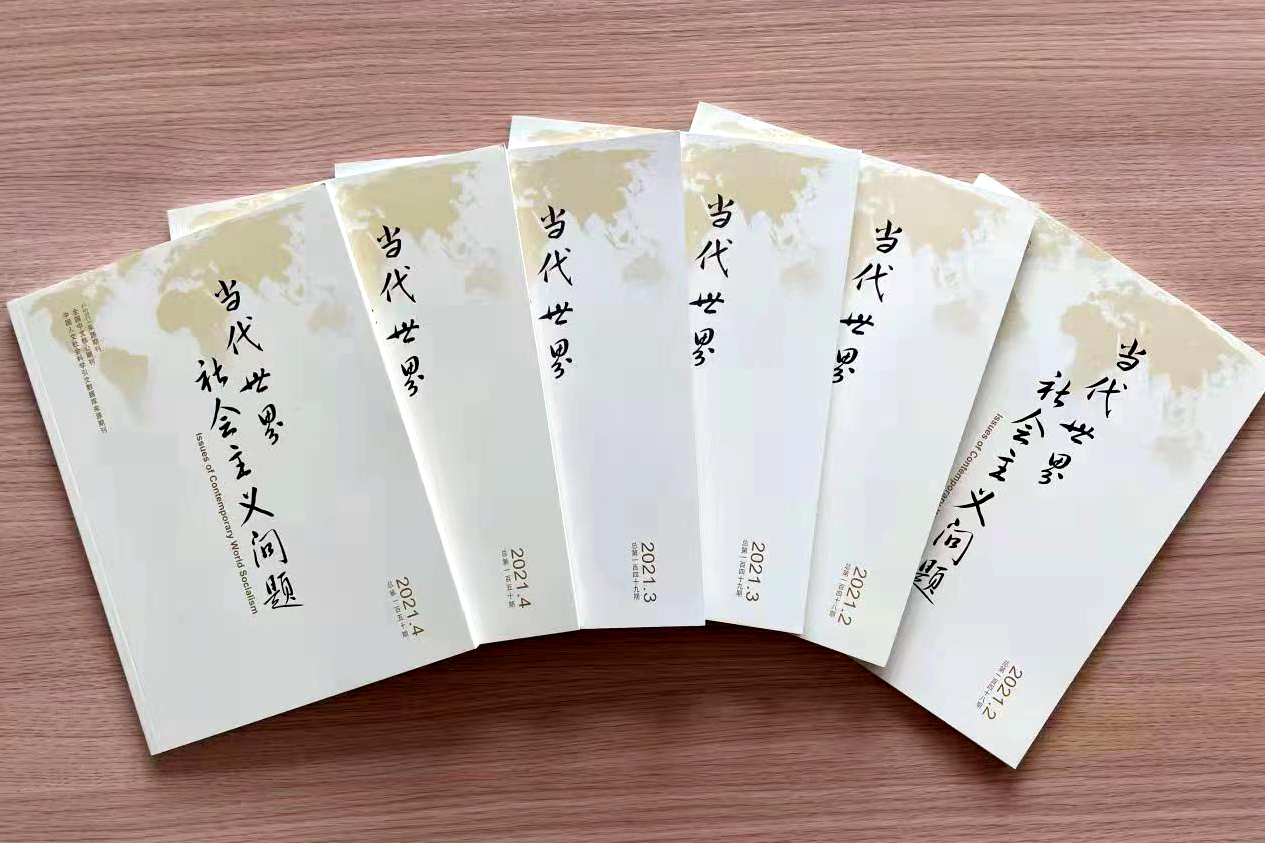 CSSCI来源期刊
全国中文核心期刊
中国人文社会科学引文数据库来源期刊
当代世界
社会主义问题
Issues of Contemporary World Socialism
2021.4
总第一百五十期
当代世界
2021.4
总第一百五十期
当代世界
2021.3
总第一百四十九期
当代世界
2021.3
总第一百四十九期
当代世界
2021.2
总第一百四十八期
当代世界
社会主义问题
Issues of Contemporary
2021.2
总第一百四十八期